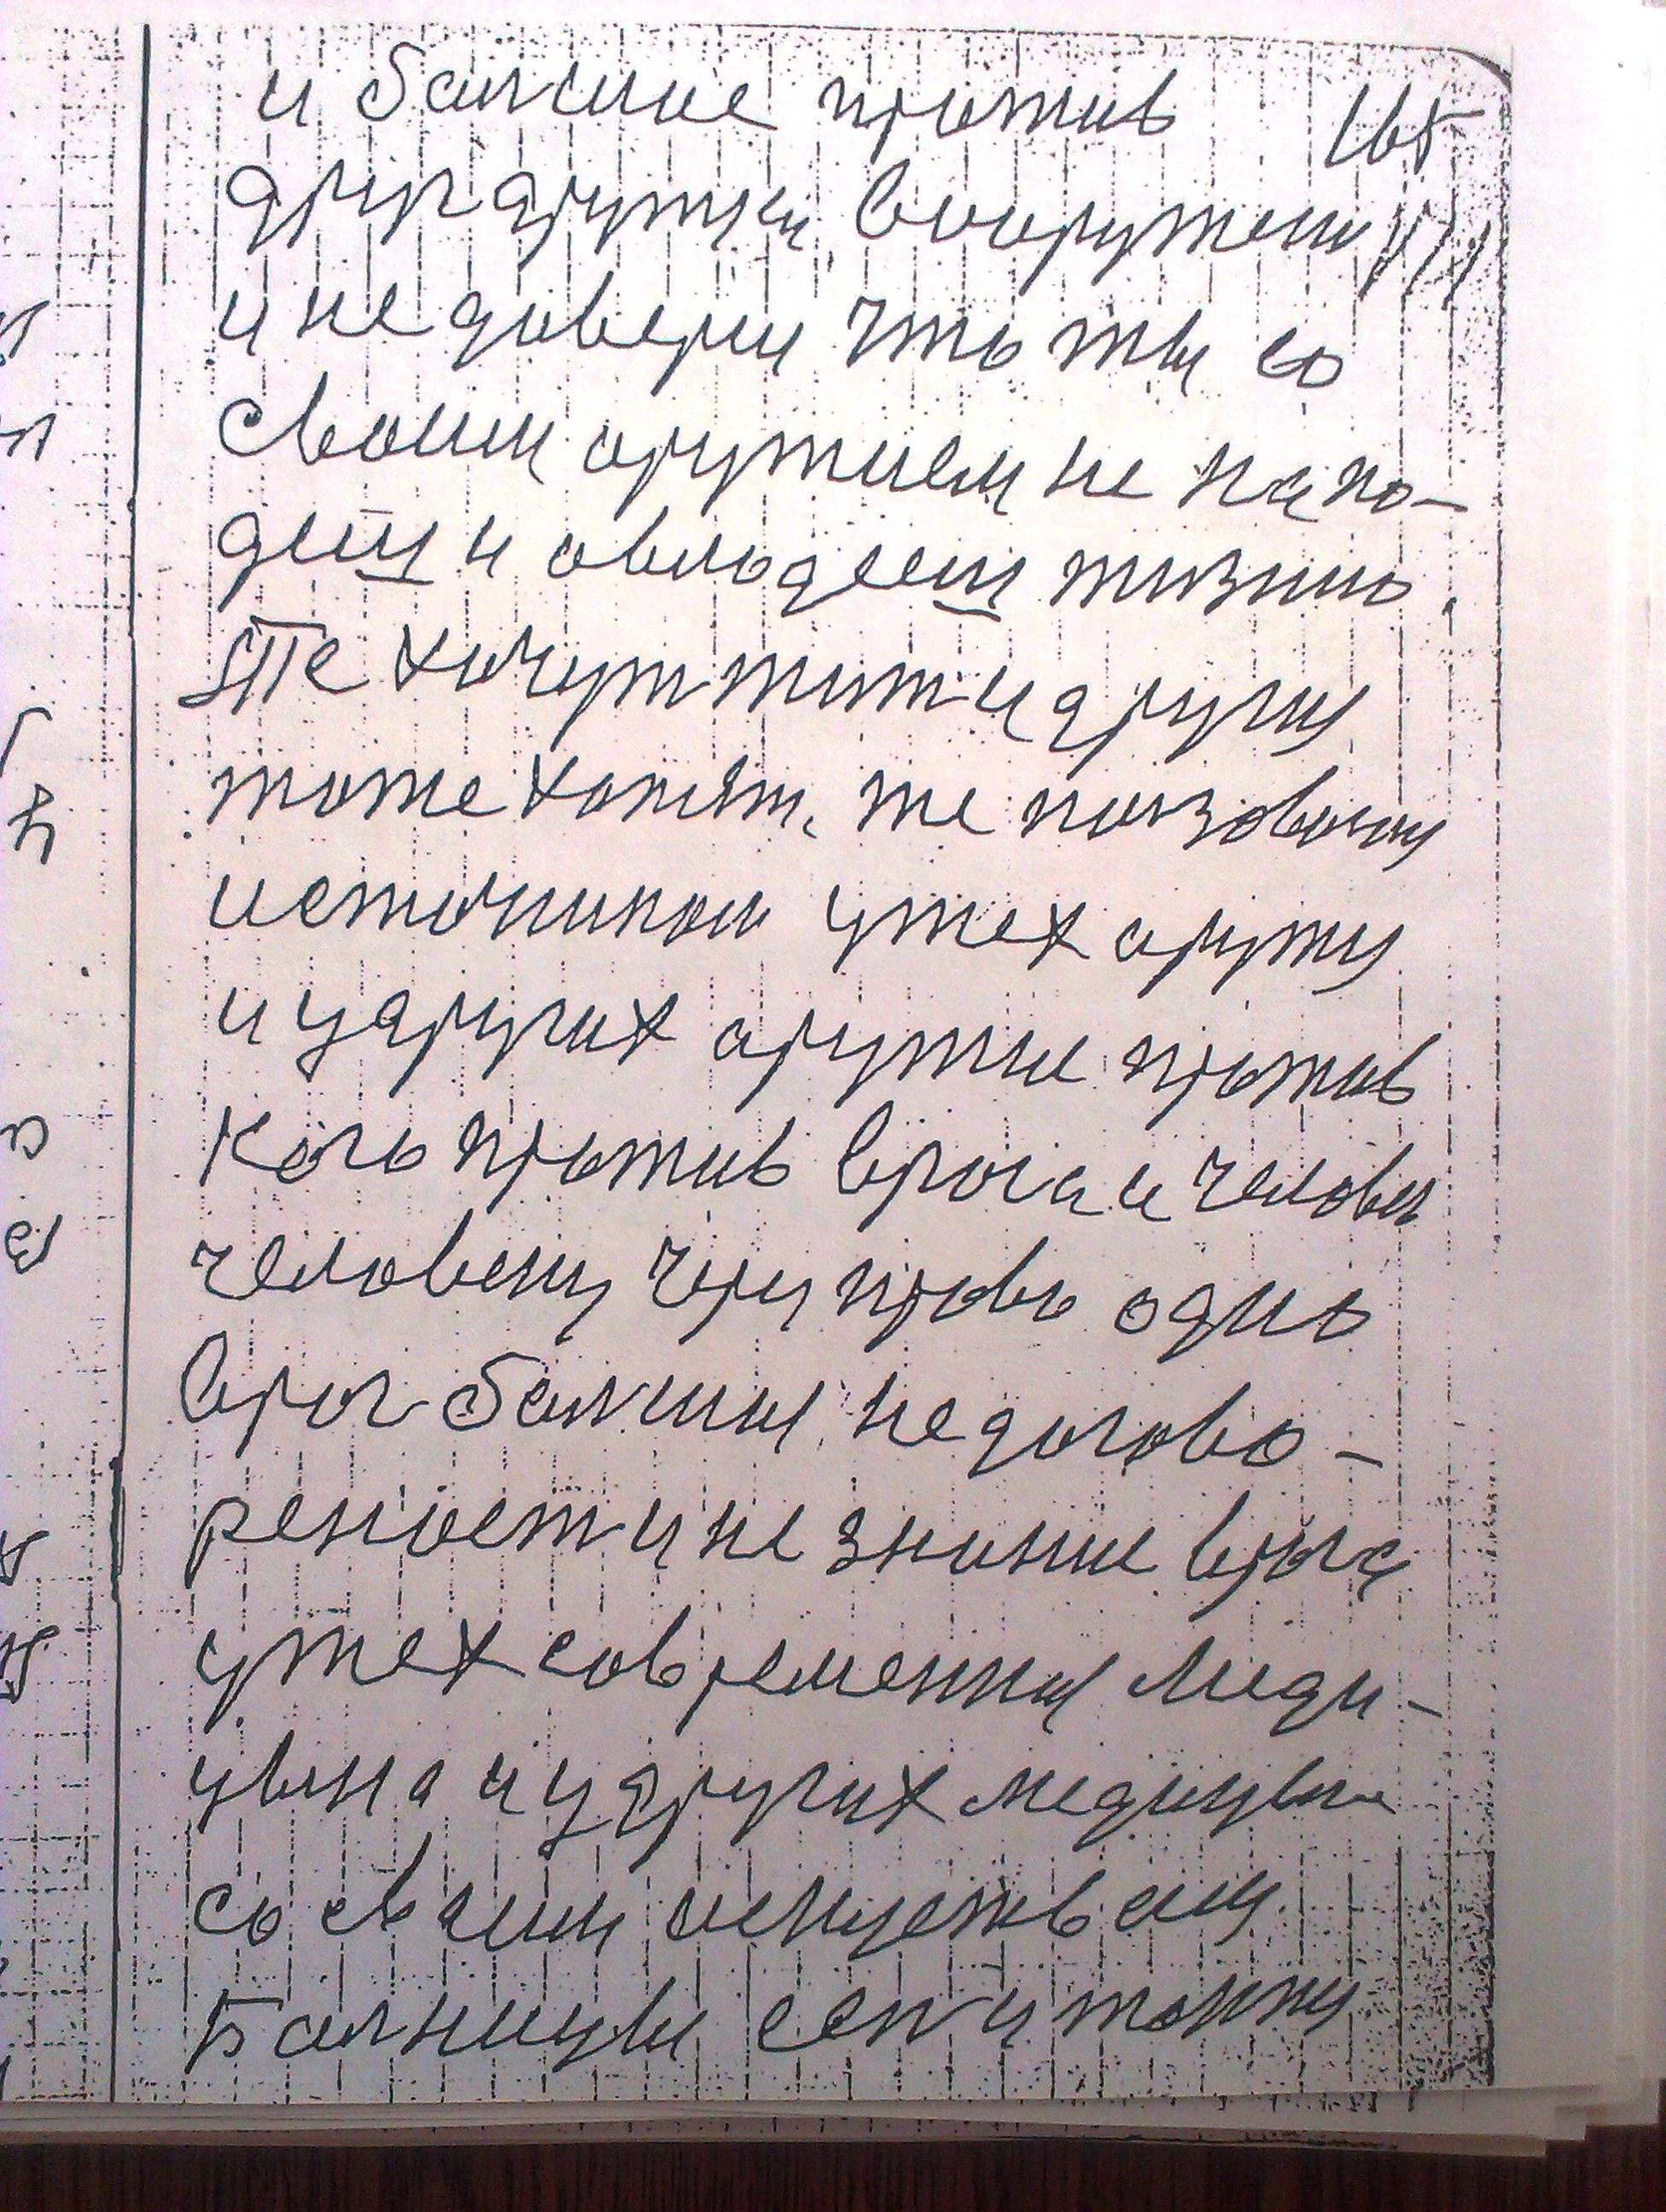 и балшие против 165
друг дружки вооружени
и не довери что ты со
своим оружием не напо-
деш и овлодееш жизню.
Те хочут жит и други
тоже хотят, те ползовони
источником у тех оружи
и у других оружие против
кого против врога и человек
человеку чери прово одно
врог балший недогово-
реност и не знание врога
у тех современный меди-
цына и у других медицына
со своим искуством
Балницы есть и тюрму